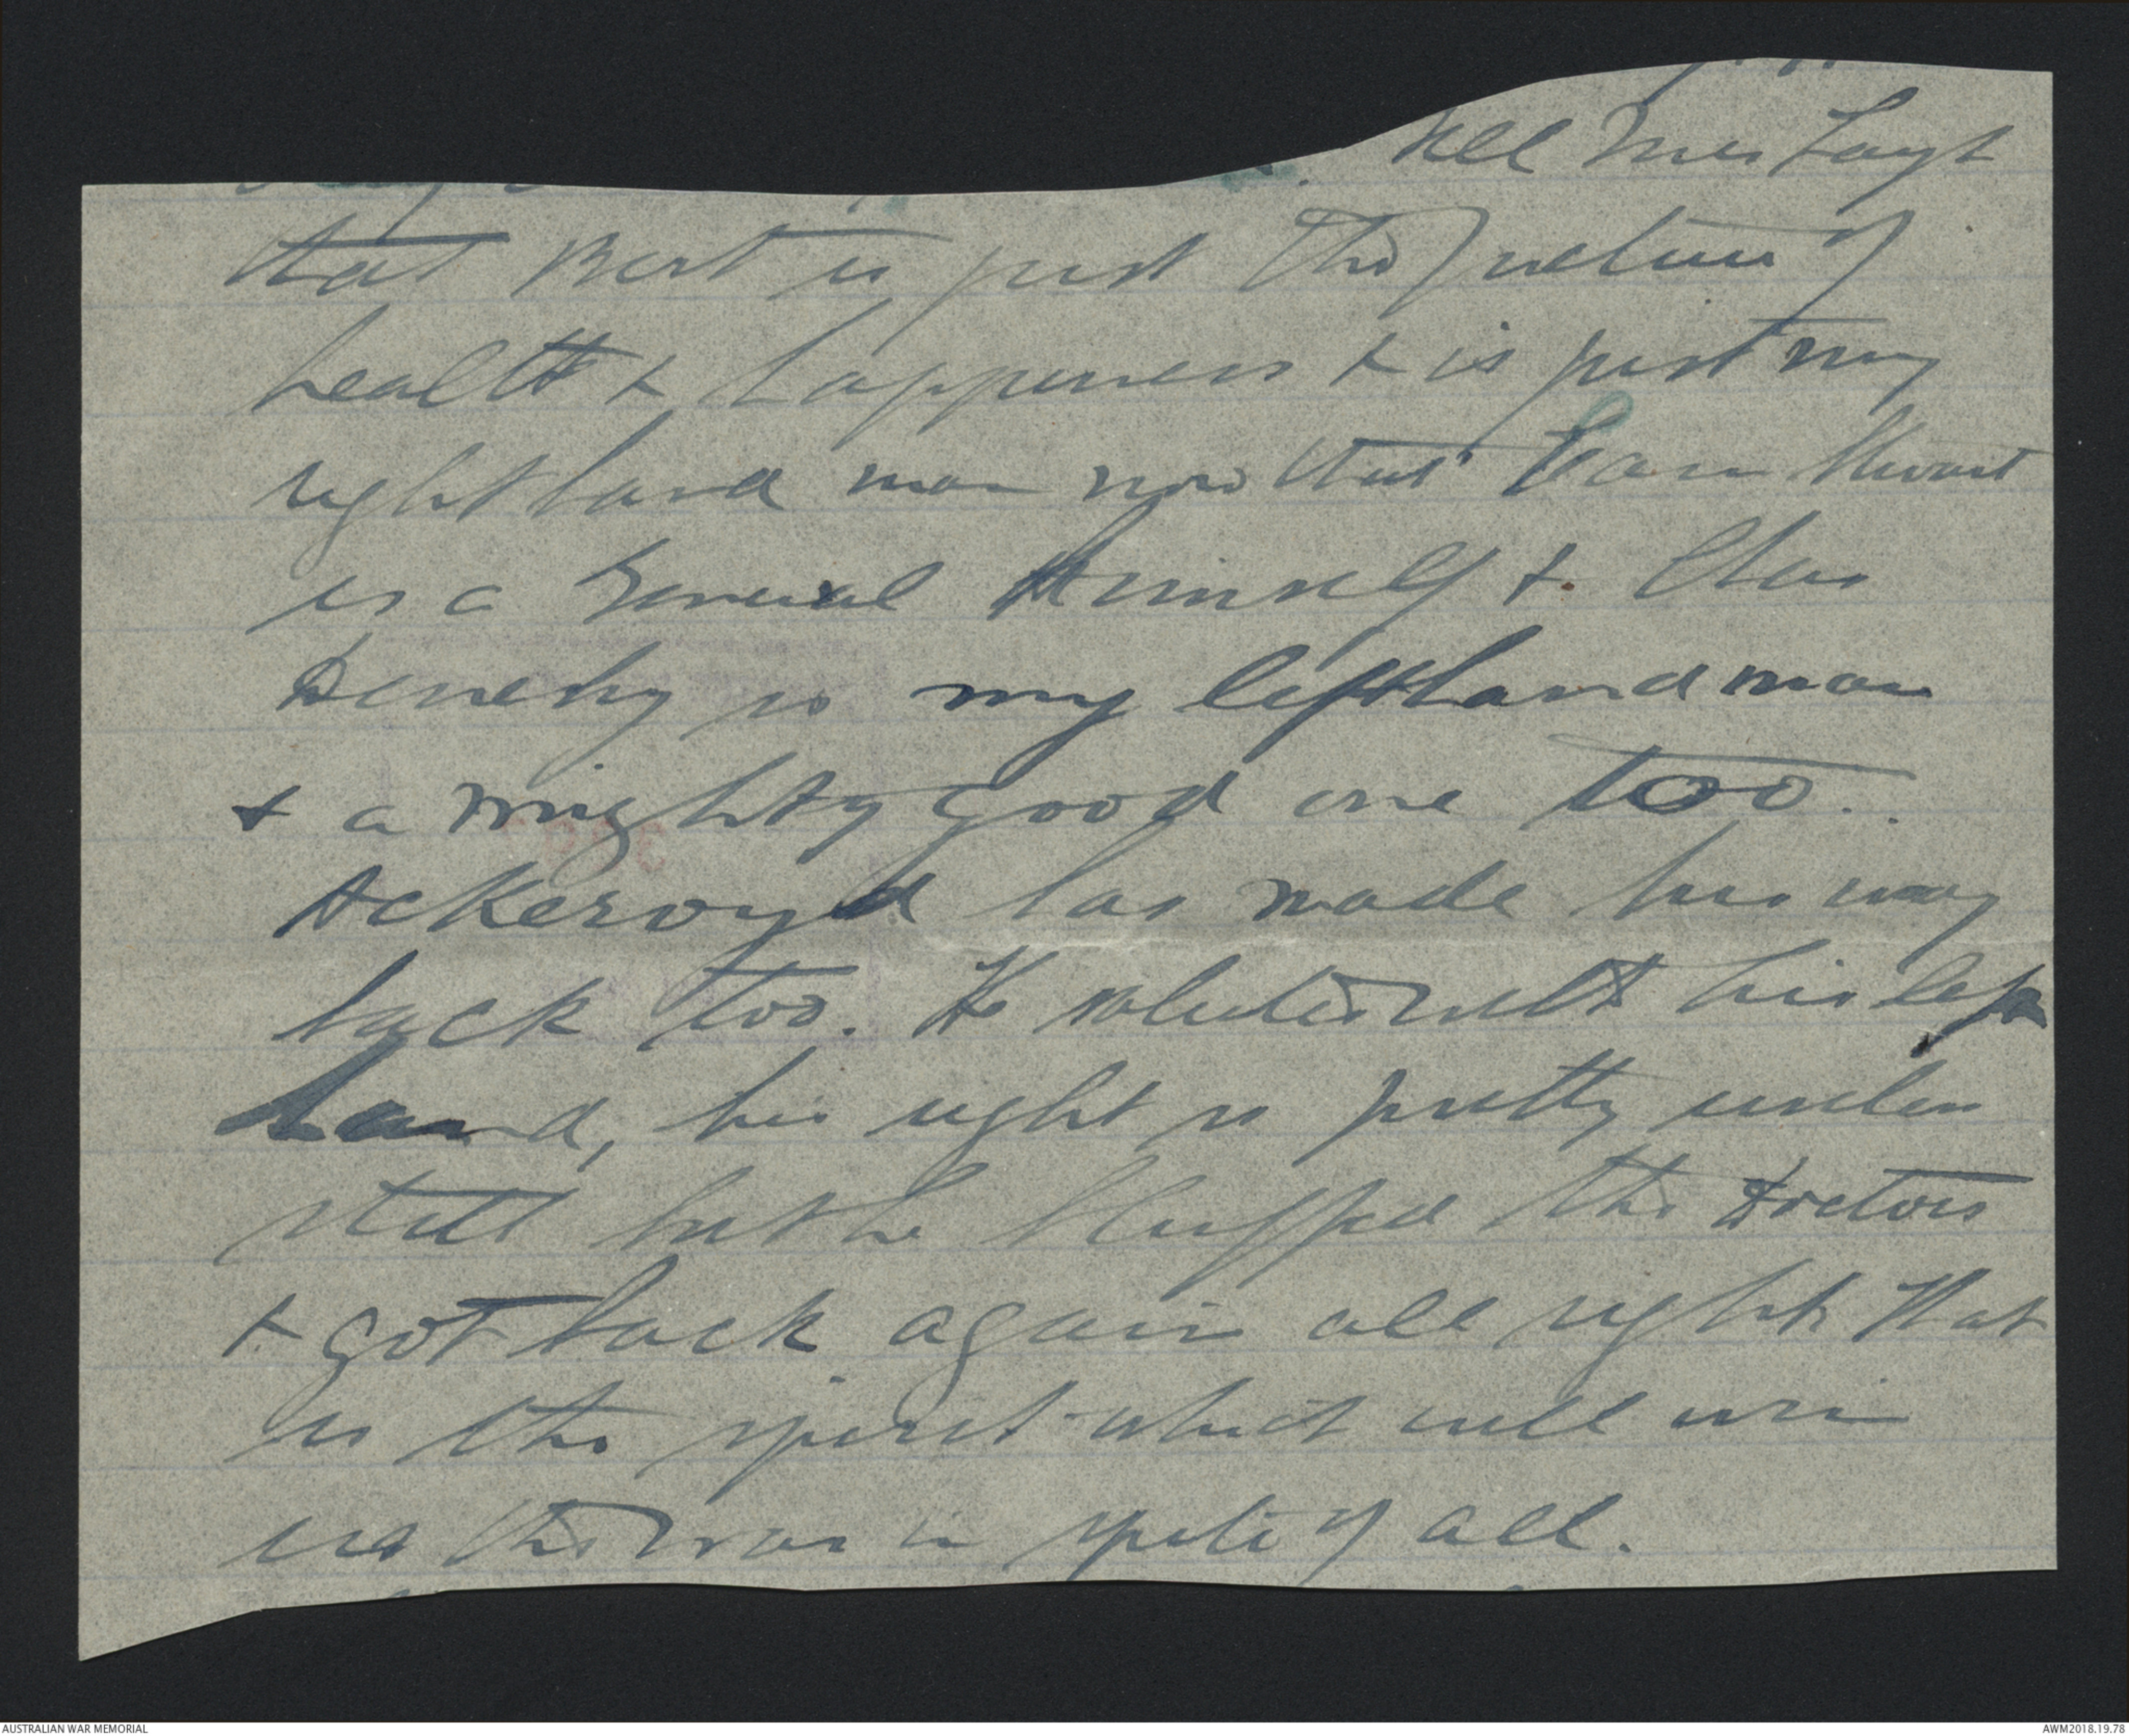 Tell Mrs Layh
that Bert is just the picture of
health & happiness & is just my
right hand man now that Cam Stewart
is a General himself & Chas
Denehy is my left hand man
& a mighty good one too.
Ackeroyd has made his way
back too. He salutes with his left
hand, his right is pretty useless
still but he bluffed the Doctors
& got back again all right that
is the spirit which will win
us the war in spite of all.
AUSTRALIAN WAR MEMORIAL
AWM2018.19.78